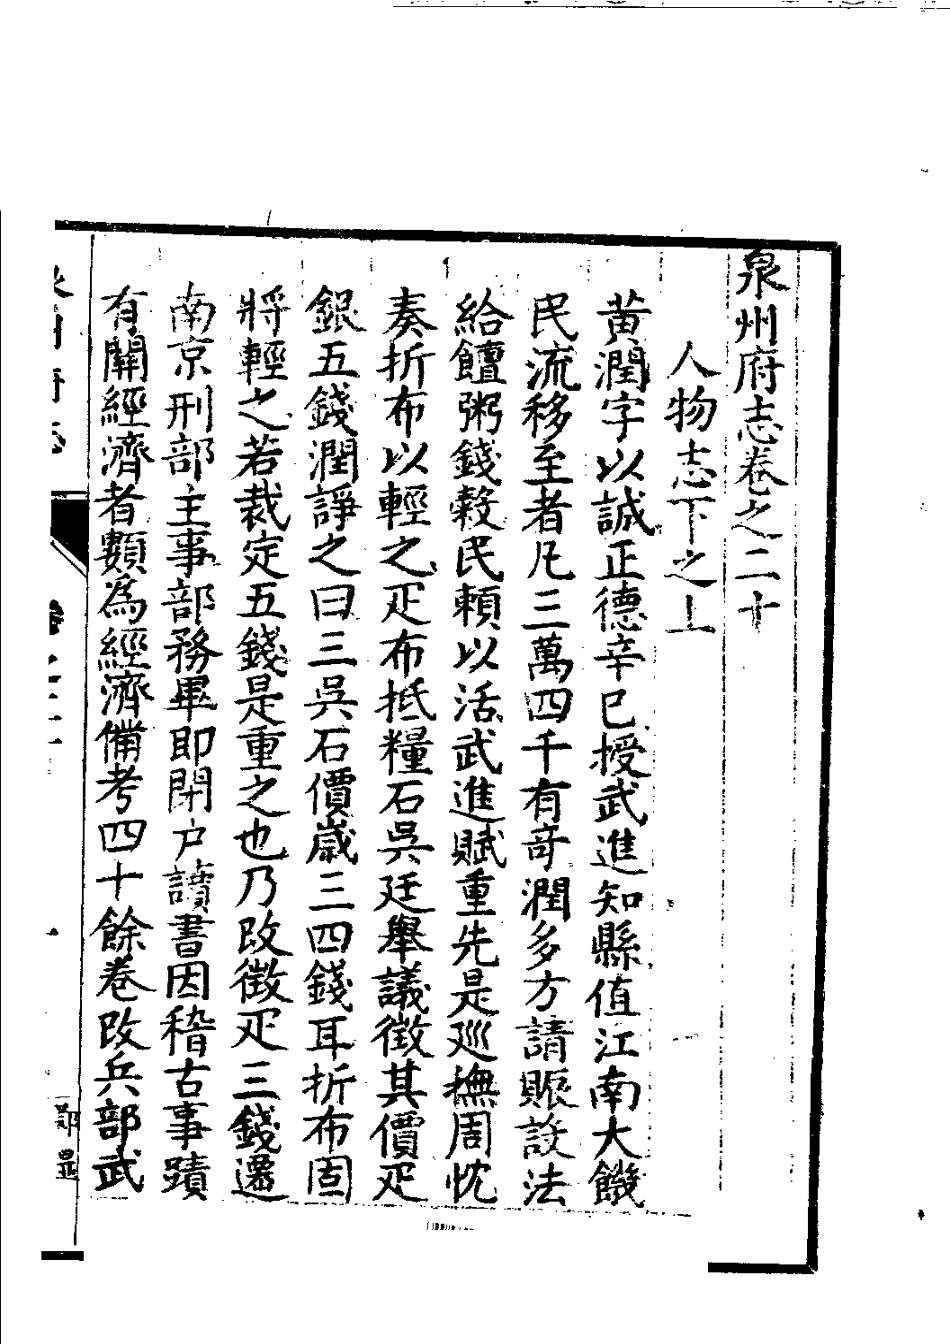 泉州府志卷之二十
人物志下之上
黃潤字以誠正德辛巳授武進知縣值江南大饑
民流移至者凡三萬四千有奇潤多方請賑設法
給饘粥錢穀民賴以活武進賦重先是廵撫周忱
奏折布以輕之疋布抵糧石吳廷舉議徵其價疋
銀五錢潤諍之曰三吳石價歲三四錢耳折布固
將輕之若裁定五錢是重之也乃改徵疋三錢遷
南京刑部主事部務畢即閉户讀書因稽古事蹟
有關經濟者類為經濟備考四十餘卷改兵部武